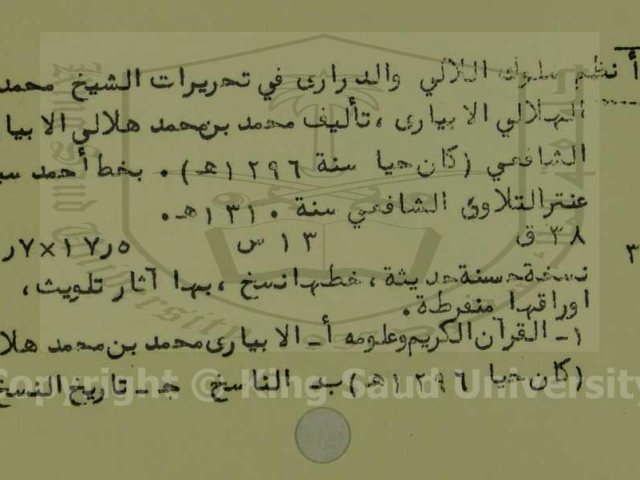 أ نظم سلوك اللآلي والدراري في تحريرات الشيخ محمد
الهلالي الابياري ، تأليف محمد بن محمد هلالي الابيا
الشافعي (كان حيا سنة ١٢٩٦هـ) . بخط أحمد
عنتر التلاوي الشافعي سنة ١٣١٠هـ.
٣٨ ق ١٣ س ٥ر١٧×٧ر
٣
نسخة حسنة حديثة ، خطها نسخ ، بها آثار تلويث ،
اوراقها منفرطة .
١- القرآن الكريم وعلومه أ- الابياري محمد بن محمد هلا
(كان حيا ١٢٩٦هـ) ب- الناسخ جـ- تاريخ النسخ
Copyright © King Saud University
King Saud University